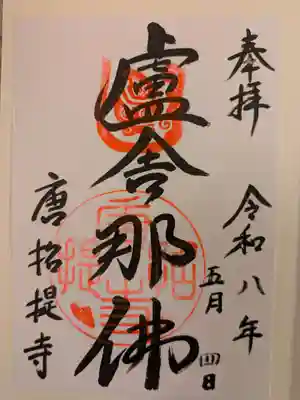 奉拝
令和八年
五月四日
盧舎那佛
唐招提寺